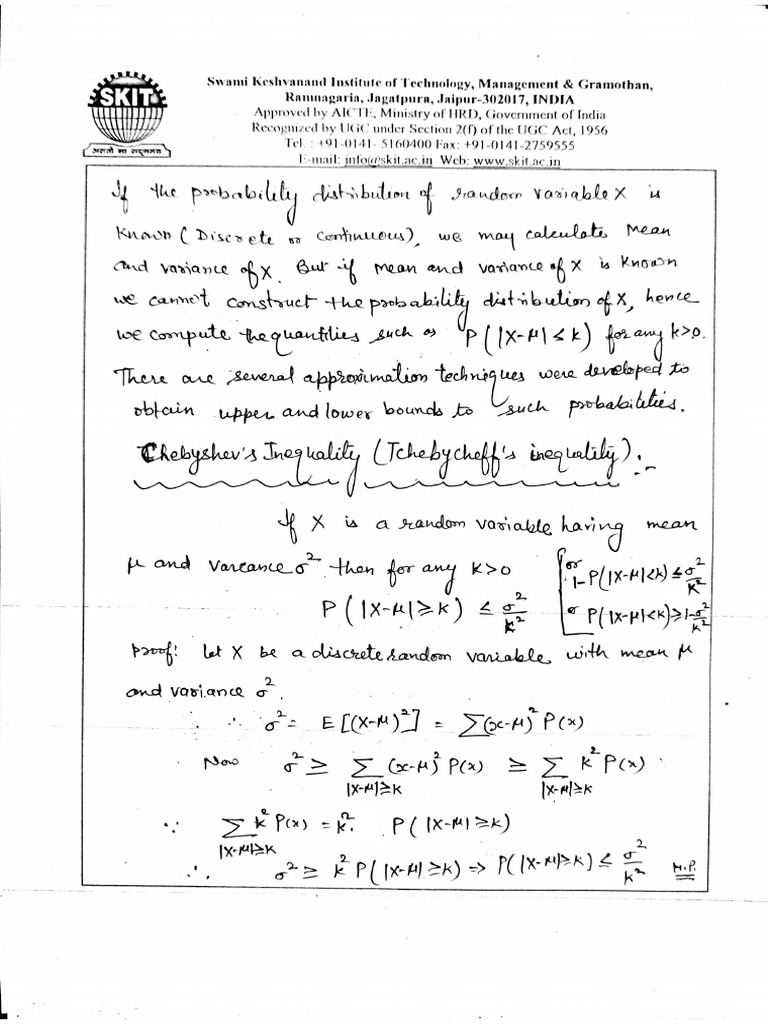 SKIT
असतो मा सद्गमय
Swami Keshvanand Institute of Technology, Management & Gramothan,
Ramnagaria, Jagatpura, Jaipur-302017, INDIA
Approved by AICTE, Ministry of HRD, Government of India
Recognized by UGC under Section 2(f) of the UGC Act, 1956
Tel. : +91-0141- 5160400 Fax: +91-0141-2759555
E-mail: info@skit.ac.in Web: www.skit.ac.in
If the probability distribution of random variable X is
known (Discrete or continuous), we may calculate Mean
and variance of X. But if Mean and variance of X is known
we cannot construct the probability distribution of X, hence
we compute the quantities such as P(|X-μ| ≤ k) for any k>0.
There are several approximation techniques were developed to
obtain upper and lower bounds to such probabilities.
Chebyshev's Inequality (Tchebycheff's inequality):-
If X is a random variable having mean
μ and variance σ², then for any k>0
P(|X-μ| ≥ k) ≤ σ²/k²
or 1-P(|X-μ|<k) ≤ σ²/k²
or P(|X-μ|<k) ≥ 1-σ²/k²
Proof: Let X be a discrete random variable with mean μ
and variance σ².
∴ σ² = E[(X-μ)²] = Σ(x-μ)² P(x)
Now σ² ≥ Σ_{|X-μ|≥k} (x-μ)² P(x) ≥ Σ_{|X-μ|≥k} k² P(x)
∵ Σ_{|X-μ|≥k} k² P(x) = k². P(|X-μ| ≥ k)
∴ σ² ≥ k² P(|X-μ| ≥ k) ⇒ P(|X-μ| ≥ k) ≤ σ²/k² H.P.